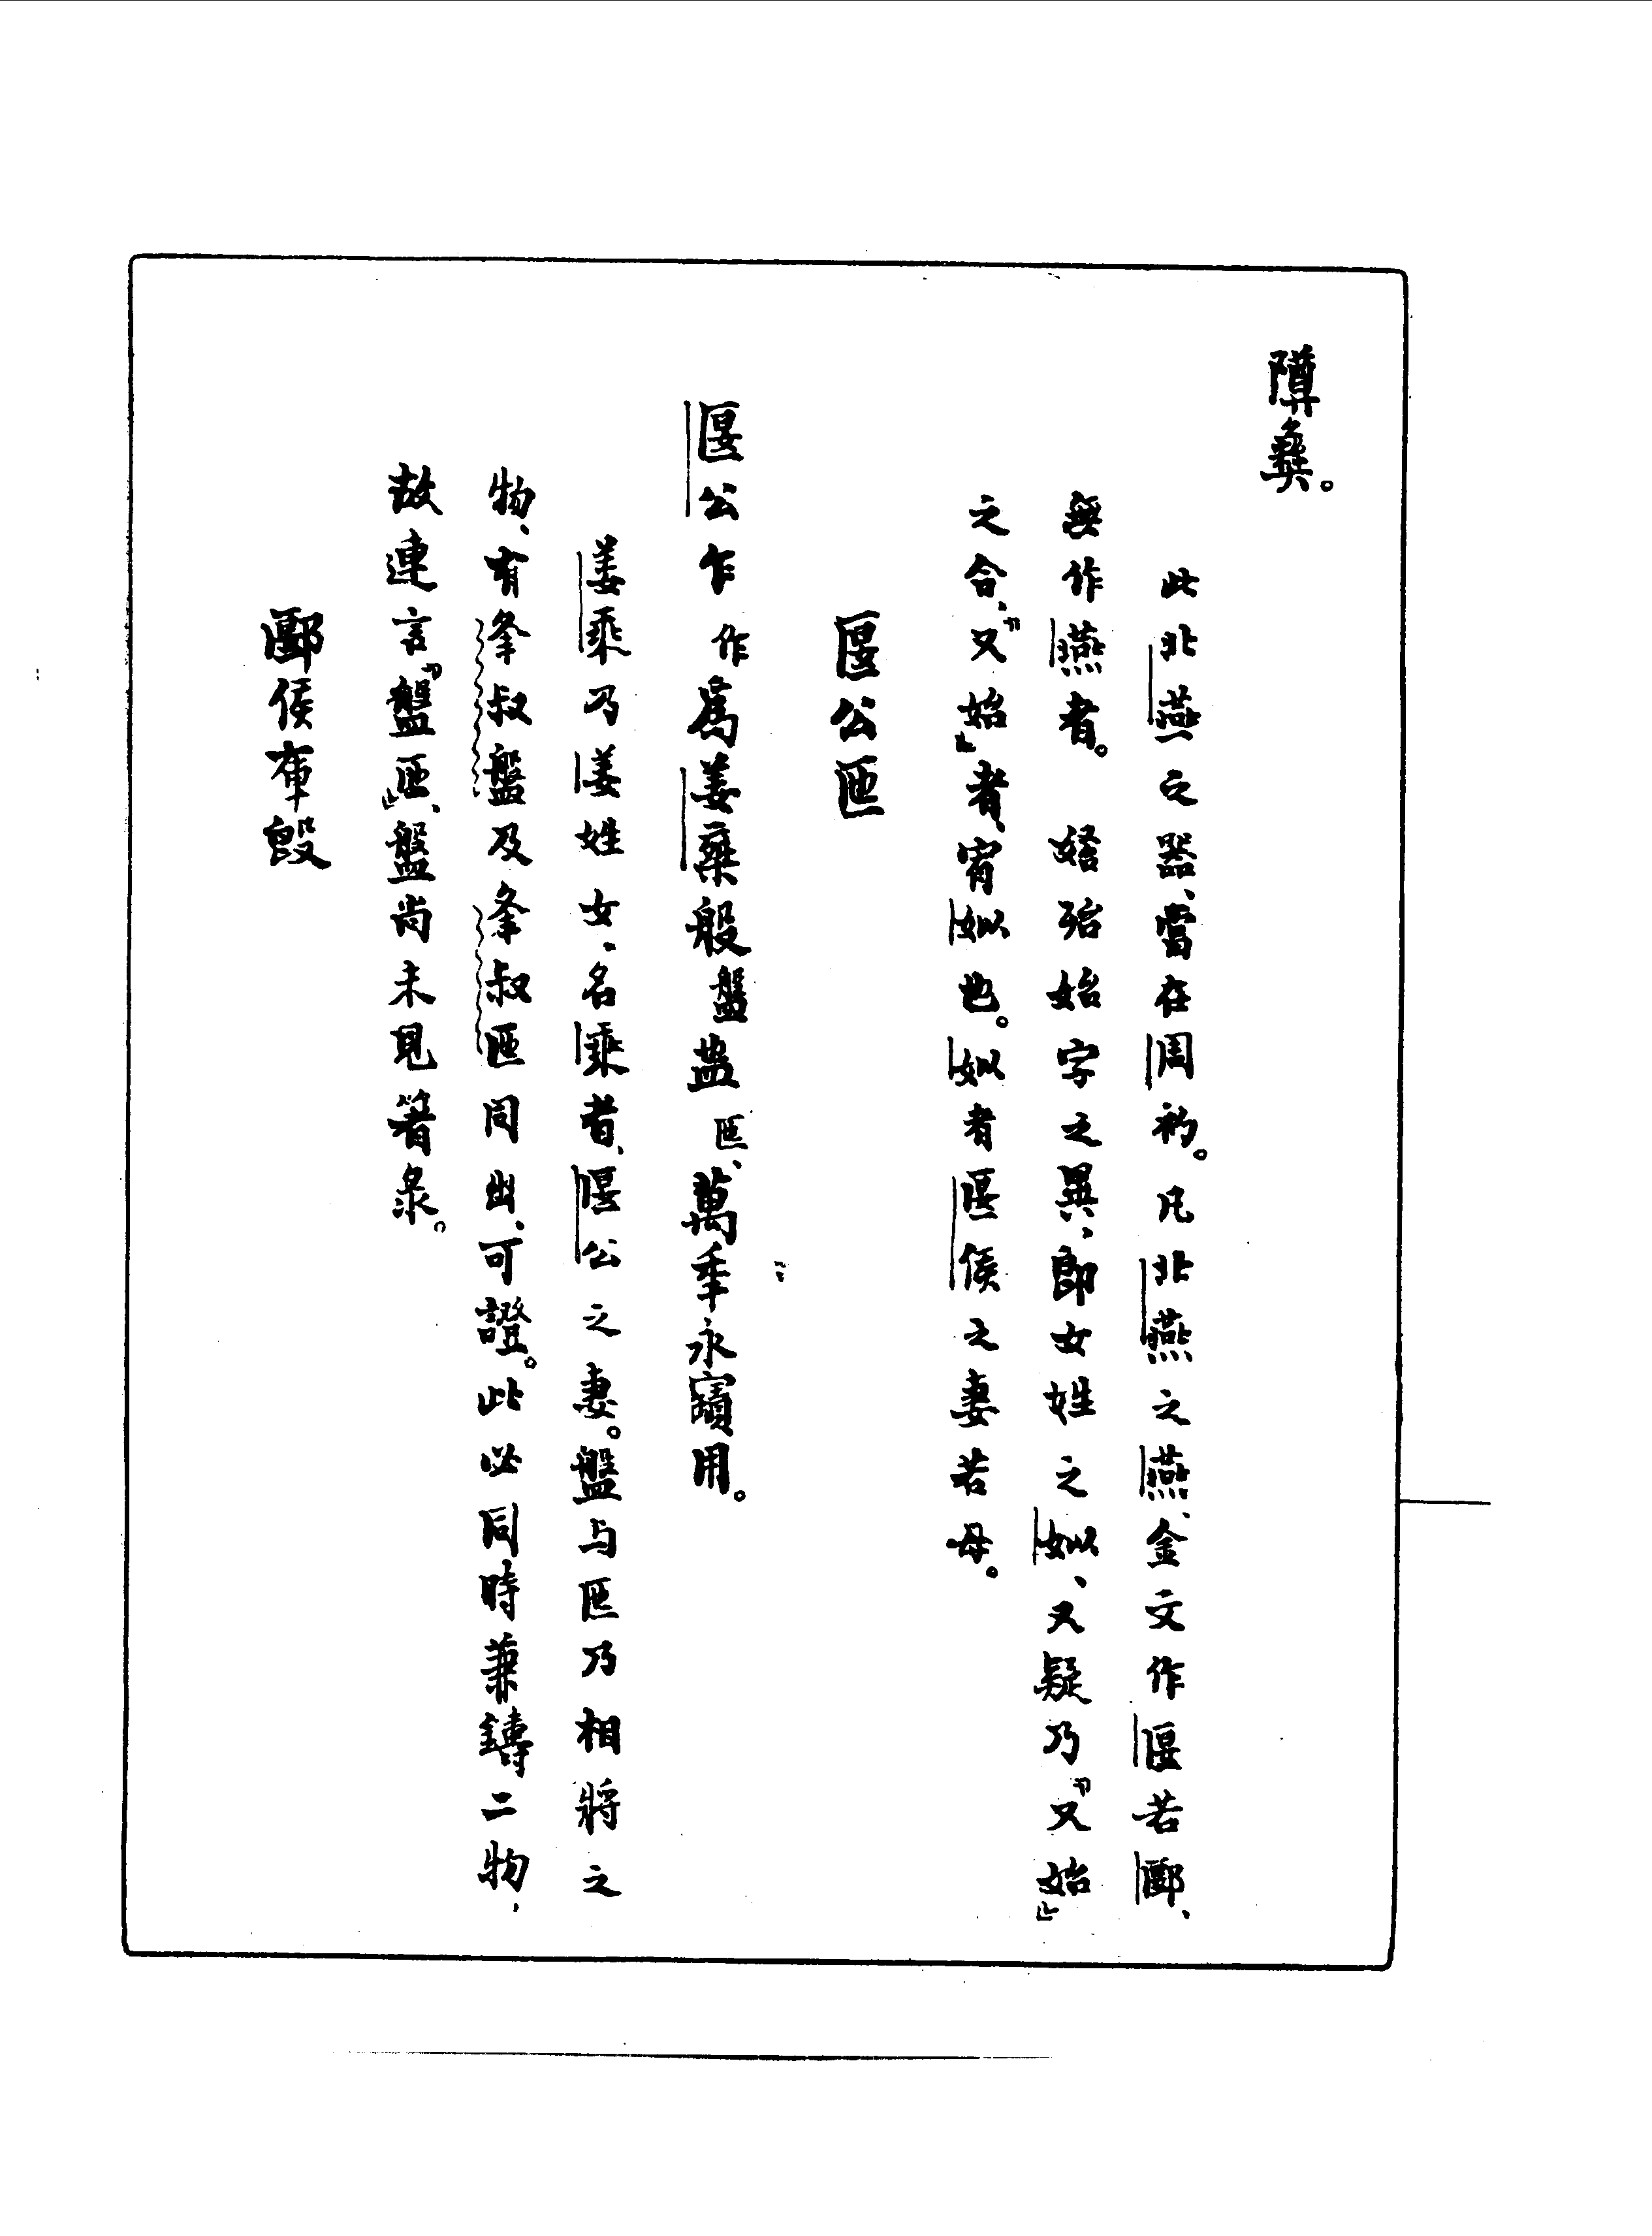 䵼彝。
此北燕之器、當在周初。凡北燕之燕、金文作匽若郾、
無作燕者。 㛗㱬始字之異、即女姓之姒、又疑乃「又始」
之合、「又始」者、宥姒也。姒者匽侯之妻若母。
匽公匜
匽公乍作爲姜乘般盤盉匜、萬年永寶用。
姜乘乃姜姓女、名乘者、匽公之妻。盤与匜乃相將之
物、有夆叔盤及夆叔匜同出、可證。此必同時兼鑄二物、
故連言「盤匜」、盤尚未見箸彔。
郾侯庫𣪘